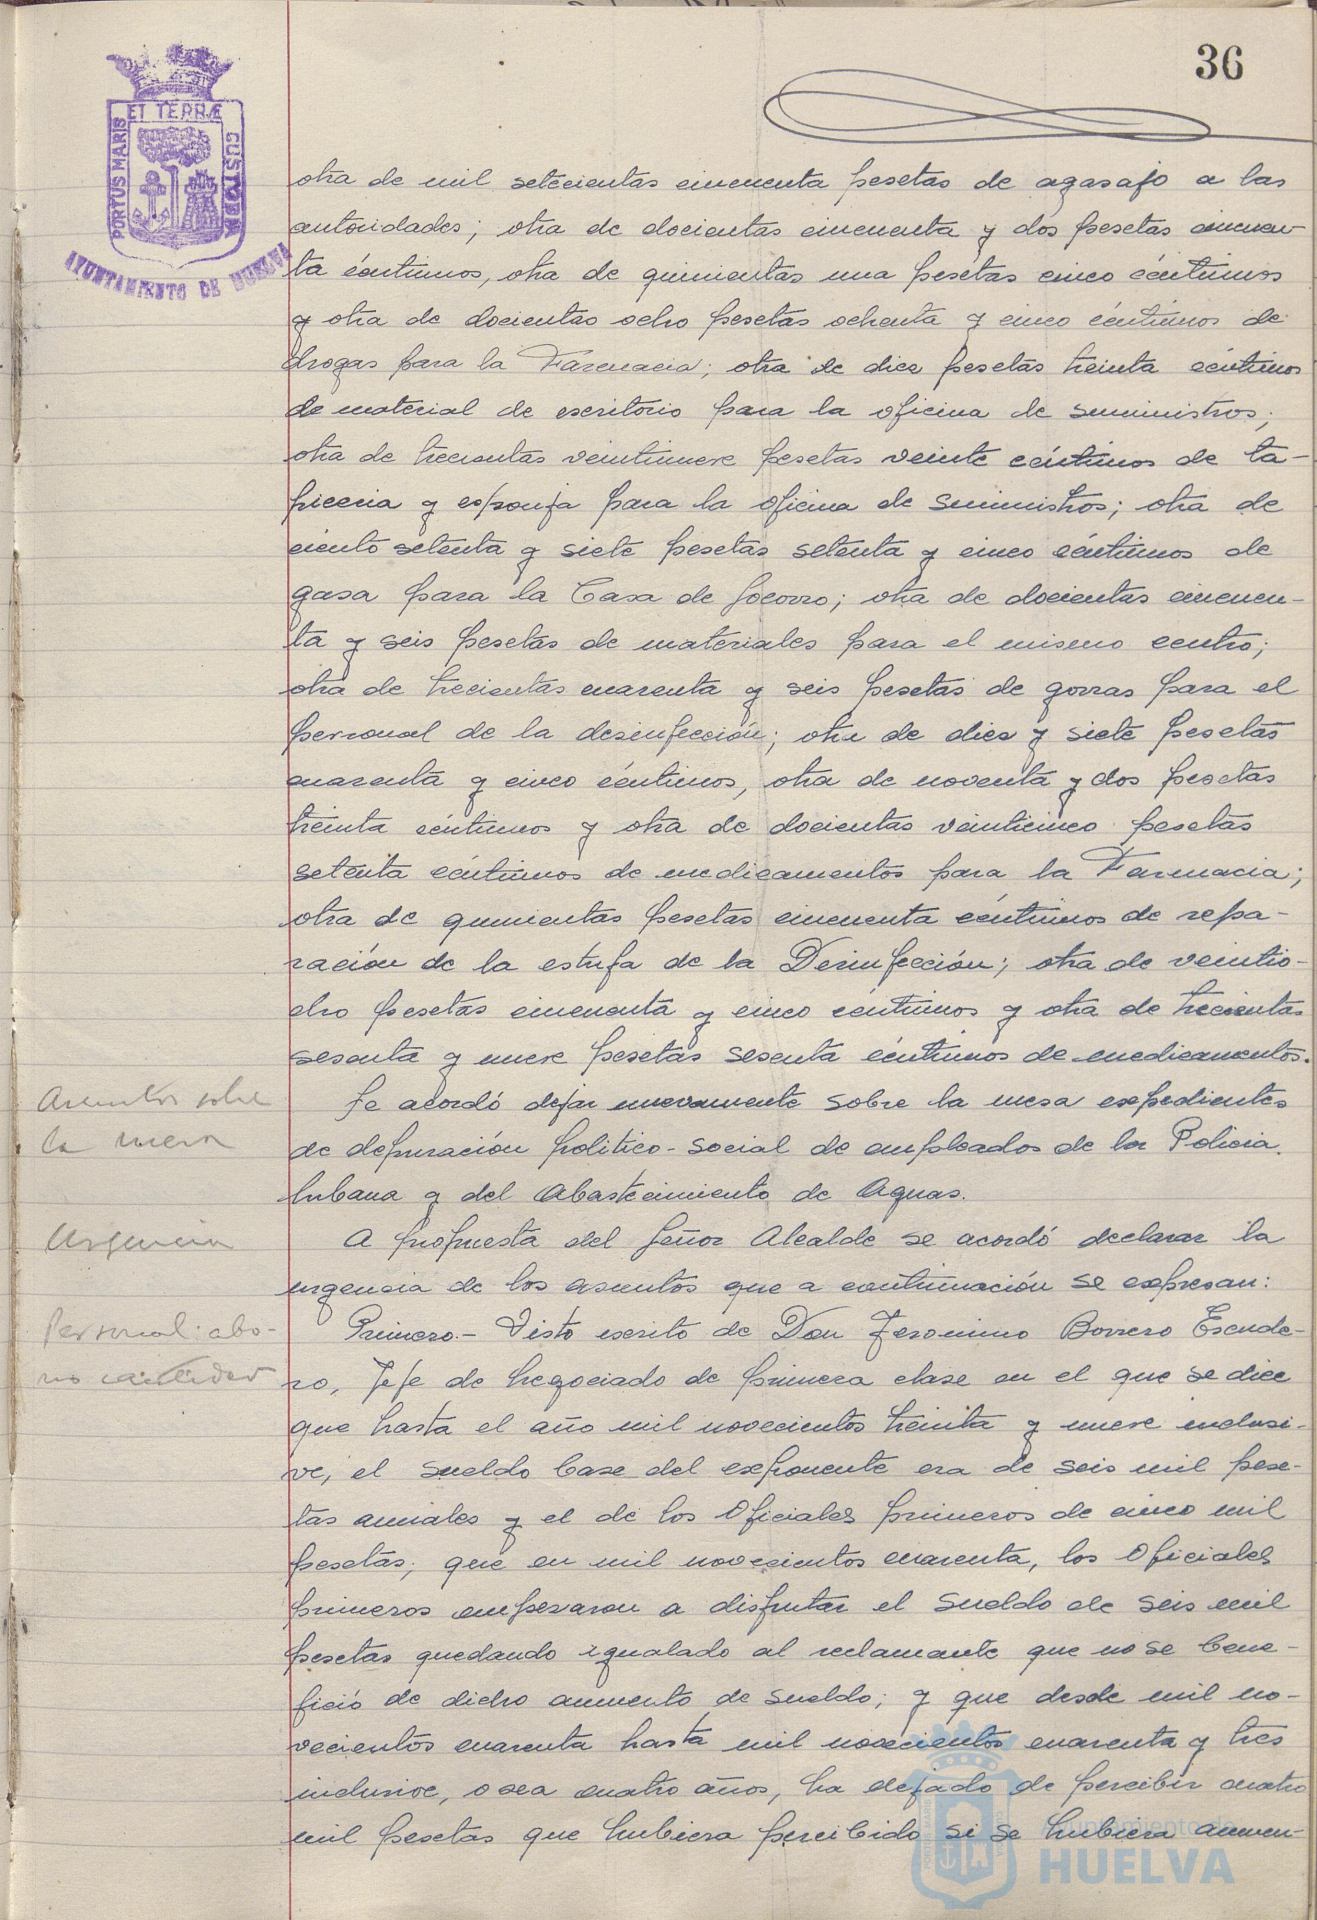 36
PORTUS MARIS ET TERRÆ CUSTODIA
AYUNTAMIENTO DE HUELVA
otra de mil setecientas cincuenta pesetas de agasajo a las
autoridades; otra de docientas cincuenta y dos pesetas cincuen-
ta céntimos, otra de quinientas una pesetas cinco céntimos
y otra de docientas ocho pesetas ochenta y cinco céntimos de
drogas para la Farmacia; otra de diez pesetas treinta céntimos
de material de escritorio para la oficina de suministros;
otra de trecientas veintinueve pesetas veinte céntimos de ta-
piceria y esponja para la oficina de Suministros; otra de
ciento setenta y siete pesetas setenta y cinco céntimos de
gasa para la Casa de Socorro; otra de docientas cincuen-
ta y seis pesetas de materiales para el mismo centro;
otra de trecientas cuarenta y seis pesetas de gorras para el
personal de la desinfección; otra de diez y siete pesetas
cuarenta y cinco céntimos, otra de noventa y dos pesetas
treinta céntimos y otra de docientas veinticinco pesetas
setenta céntimos de medicamentos para la Farmacia;
otra de quinientas pesetas cincuenta céntimos de repa-
ración de la estufa de la Desinfección; otra de veintio-
cho pesetas cincuenta y cinco céntimos y otra de trecientas
sesenta y nueve pesetas sesenta céntimos de medicamentos.
Asuntos sobre
la mesa
Se acordó dejar nuevamente sobre la mesa expedientes
de depuración politico-social de empleados de la Policia
Urbana y del Abastecimiento de Aguas.
Urgencia
A propuesta del Señor Alcalde se acordó declarar la
urgencia de los asuntos que a continuación se expresan:
Personal: abo-
no cantidad
Primero.- Visto escrito de Don Jeronimo Borrero Escude-
ro, Jefe de Negociado de primera clase en el que se dice
que hasta el año mil novecientos treinta y nueve inclusi-
ve, el sueldo base del exponente era de seis mil pese-
tas anuales y el de los Oficiales primeros de cinco mil
pesetas; que en mil novecientos cuarenta, los Oficiales
primeros empezaron a disfrutar el sueldo de seis mil
pesetas quedando igualado al reclamante que no se bene-
fició de dicho aumento de sueldo; y que desde mil no-
vecientos cuarenta hasta mil novecientos cuarenta y tres
inclusive, o sea cuatro años, ha dejado de percibir cuatro
mil pesetas que hubiera percibido si se hubiera aumen-
Ayuntamiento de
HUELVA